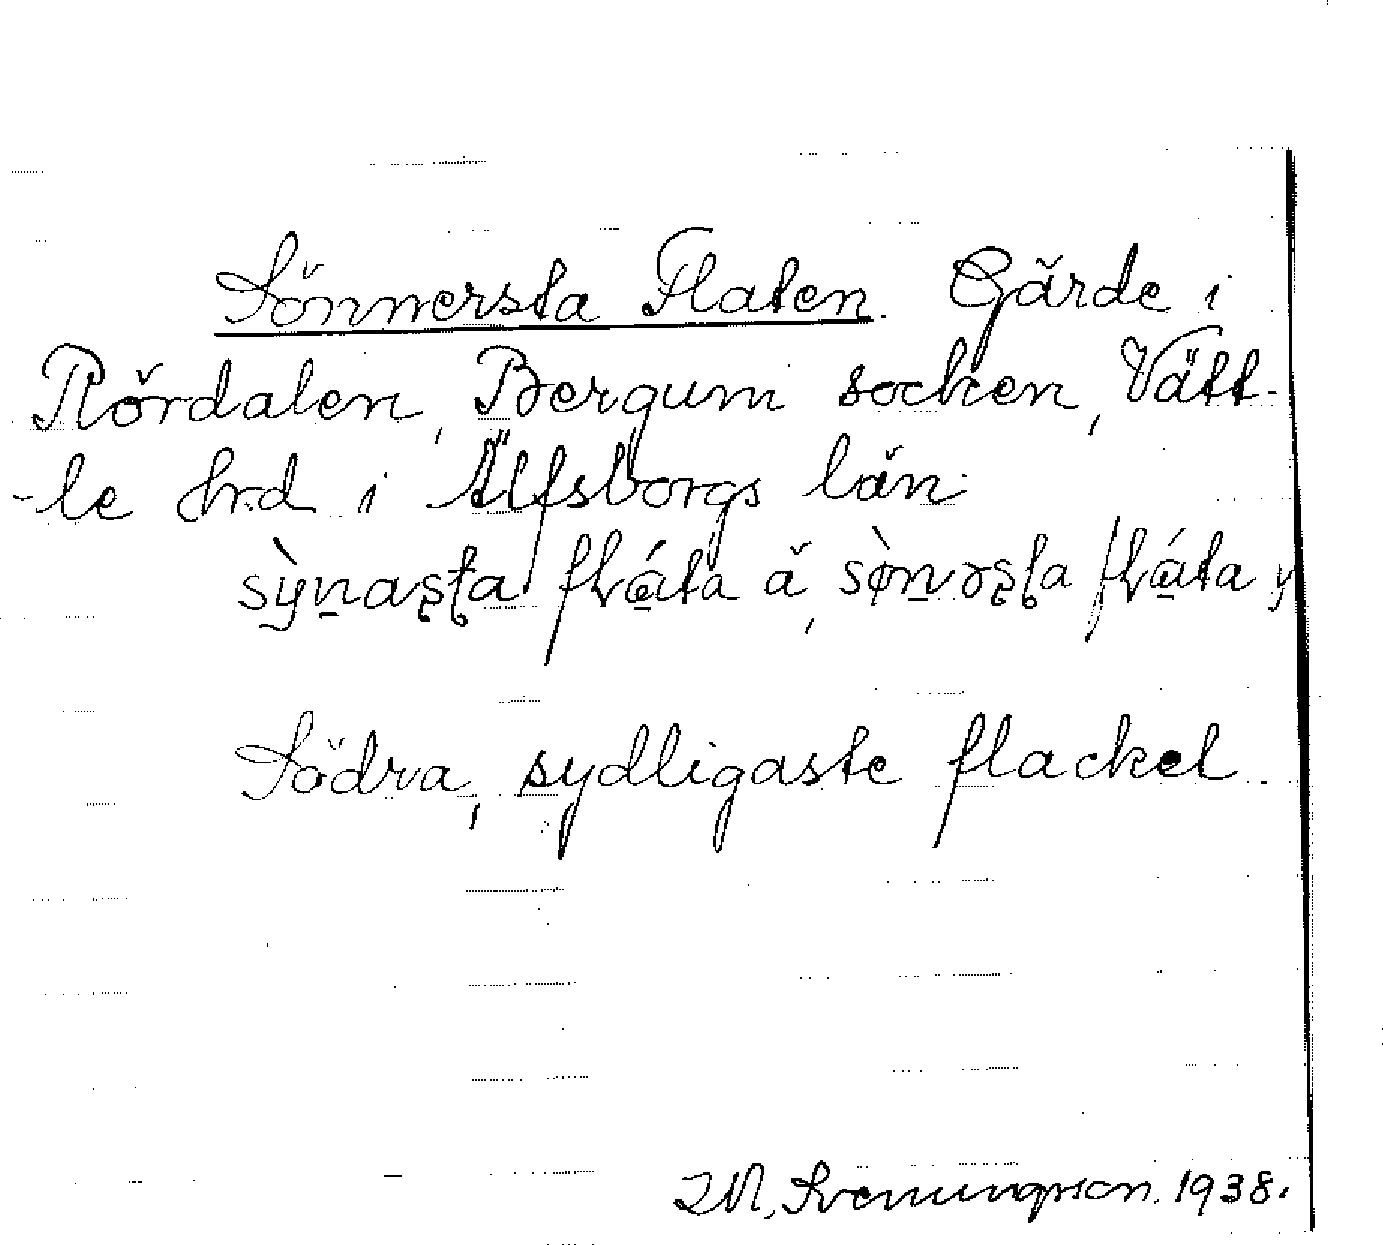 Sönnersta Flaten. Gärde i
Rördalen, Bergum socken, Vätt-
-le hrd i Älfsborgs län.
sỳnaşta flǻta ä, sø̀nəşta flǻta y
Södra, sydligaste flackel.
J M, Svenungsson. 1938.